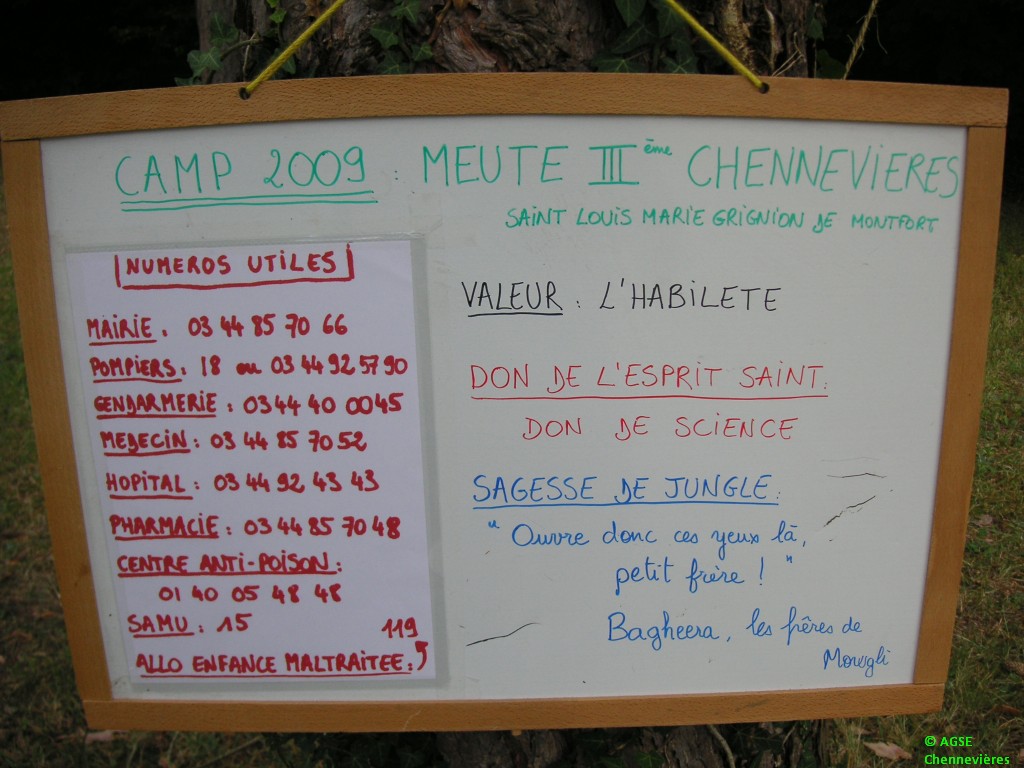 CAMP 2009 : MEUTE III ème CHENNEVIERES
SAINT LOUIS MARIE GRIGNION DE MONTFORT
NUMEROS UTILES
MAIRIE : 03 44 85 70 66
POMPIERS : 18 ou 03 44 92 57 90
GENDARMERIE : 03 44 40 00 45
MEDECIN : 03 44 85 70 52
HOPITAL : 03 44 92 43 43
PHARMACIE : 03 44 85 70 48
CENTRE ANTI-POISON :
01 40 05 48 48
SAMU : 15
119
ALLO ENFANCE MALTRAITEE :
VALEUR : L'HABILETE
DON DE L'ESPRIT SAINT :
DON DE SCIENCE
SAGESSE DE JUNGLE :
" Ouvre donc ces yeux là,
petit frère ! "
Bagheera, les frères de
Mowgli
© AGSE
Chennevières